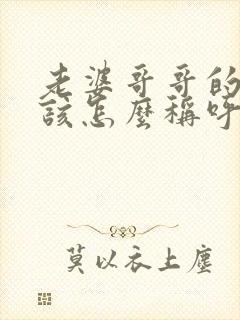 老婆哥哥的
該怎麼稱呼
莫以衣上塵